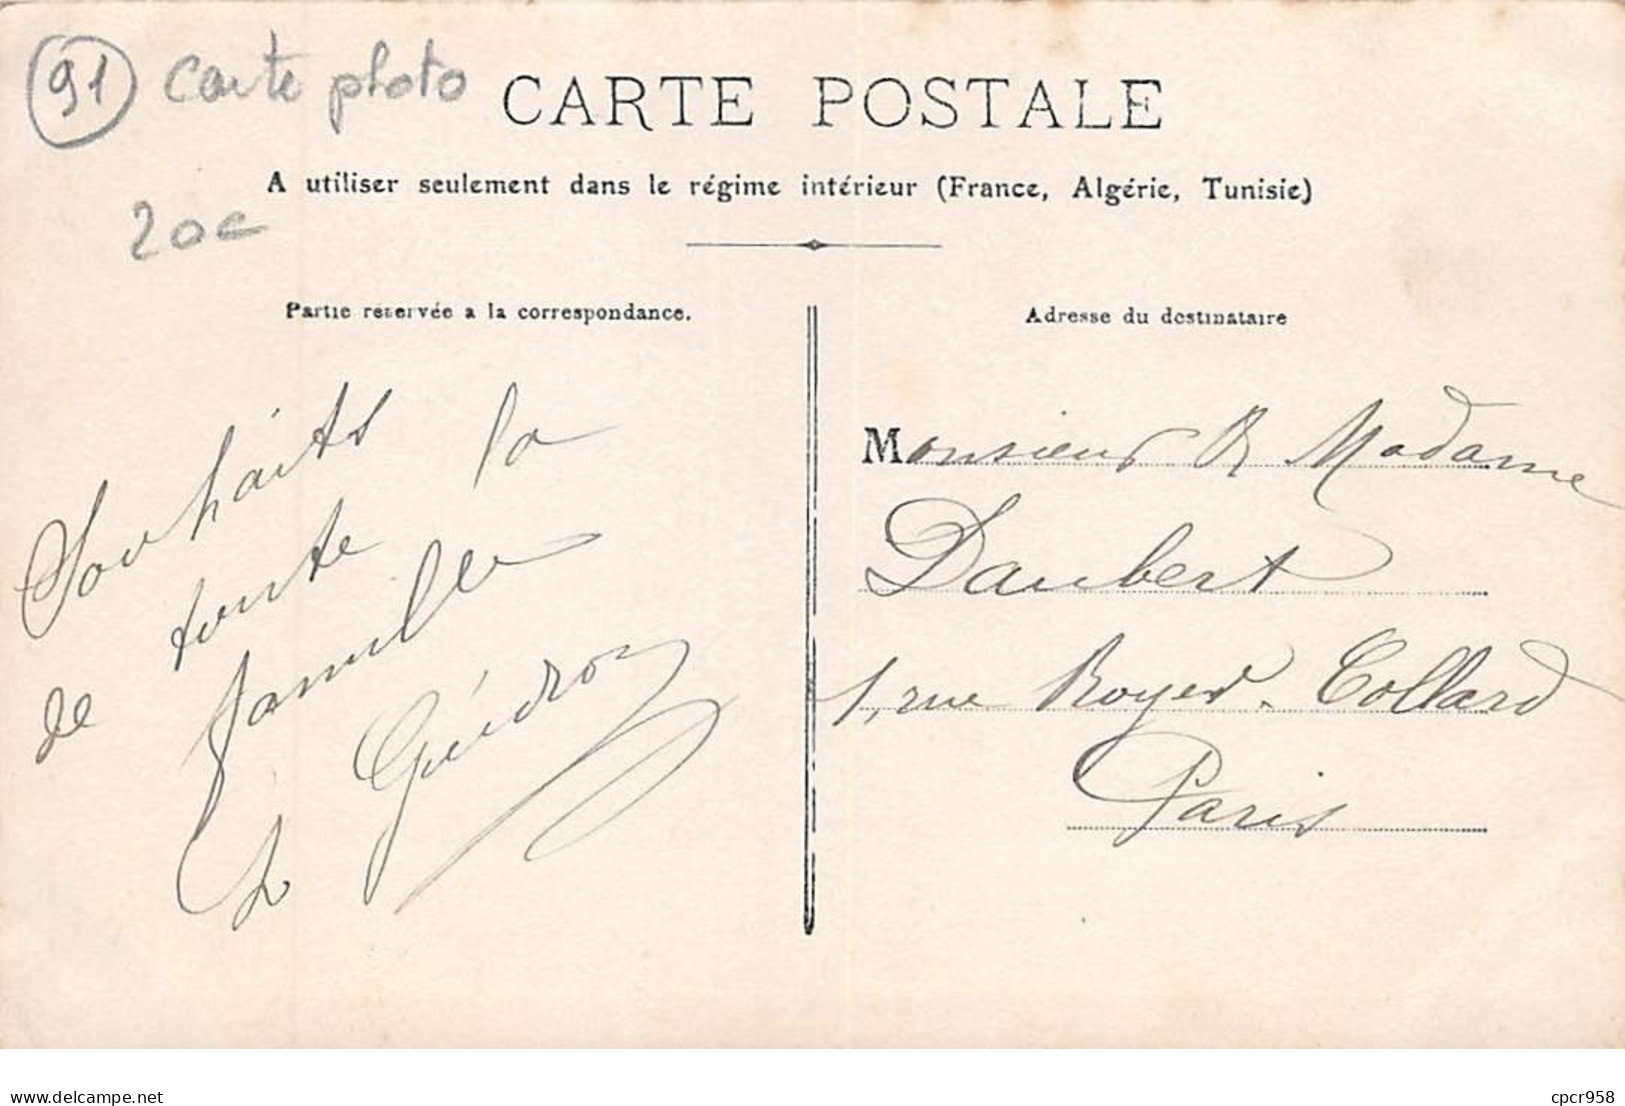 91 carte photo
CARTE POSTALE
A utiliser seulement dans le régime intérieur (France, Algérie, Tunisie)
20c
Partie réservée a la correspondance.
Souhaits
de toute la
famille
Guédron
Adresse du destinataire
Monsieur & Madame
Daubert
1, rue Royer-Collard
Paris
delcampe.net
cpcr958